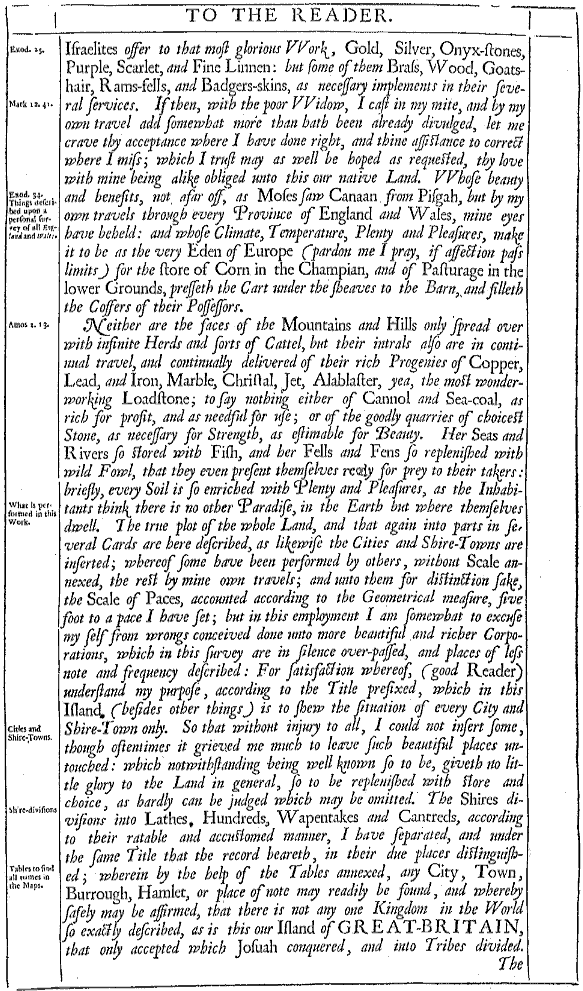 TO THE READER.
Exod. 25.
Iſraelites offer to that moſt glorious VVork, Gold, Silver, Onyx-ſtones,
Purple, Scarlet, and Fine Linnen: but ſome of them Braſs, Wood, Goats-
hair, Rams-fells, and Badgers-skins, as neceſſary implements in their ſeve-
Mark 12. 41.
ral ſervices. If then, with the poor VVidow, I caſt in my mite, and by my
own travel add ſomewhat more than hath been already divulged, let me
crave thy acceptance where I have done right, and thine aſſiſtance to correct
where I miſs; which I truſt may as well be hoped as requeſted, thy love
with mine being alike obliged unto this our native Land. VVhoſe beauty
Exod. 34.
Things deſcri-
bed upon a
perſonal ſur-
vey of all Eng-
land and Wales.
and benefits, not afar off, as Moſes ſaw Canaan from Piſgah, but by my
own travels through every Province of England and Wales, mine eyes
have beheld: and whoſe Climate, Temperature, Plenty and Pleaſures, make
it to be as the very Eden of Europe (pardon me I pray, if affection paſs
limits) for the ſtore of Corn in the Champian, and of Paſturage in the
lower Grounds, preſſeth the Cart under the ſheaves to the Barn, and filleth
the Coffers of their Poſſeſſors.
Amos 2. 13.
Neither are the faces of the Mountains and Hills only ſpread over
with infinite Herds and ſorts of Cattel, but their intrals alſo are in conti-
nual travel, and continually delivered of their rich Progenies of Copper,
Lead, and Iron, Marble, Chriſtal, Jet, Alablaſter, yea, the moſt wonder-
working Loadſtone; to ſay nothing either of Cannol and Sea-coal, as
rich for profit, and as needful for uſe; or of the goodly quarries of choiceſt
Stone, as neceſſary for Strength, as eſtimable for Beauty. Her Seas and
Rivers ſo ſtored with Fiſh, and her Fells and Fens ſo repleniſhed with
wild Fowl, that they even preſent themſelves ready for prey to their takers:
briefly, every Soil is ſo enriched with Plenty and Pleaſures, as the Inhabi-
What is per-
formed in this
Work.
tants think there is no other Paradiſe, in the Earth but where themſelves
dwell. The true plot of the whole Land, and that again into parts in ſe-
veral Cards are here deſcribed, as likewiſe the Cities and Shire-Towns are
inſerted; whereof ſome have been performed by others, without Scale an-
nexed, the reſt by mine own travels; and unto them for diſtinction ſake,
the Scale of Paces, accounted according to the Geometrical meaſure, five
foot to a pace I have ſet; but in this employment I am ſomewhat to excuſe
my ſelf from wrongs conceived done unto more beautiful and richer Corpo-
rations, which in this ſurvey are in ſilence over-paſſed, and places of leſs
note and frequency deſcribed: For ſatisfaction whereof, (good Reader)
underſtand my purpoſe, according to the Title prefixed, which in this
Iſland, (beſides other things) is to ſhew the ſituation of every City and
Cities and
Shire-Towns.
Shire-Town only. So that without injury to all, I could not inſert ſome,
though oftentimes it grieved me much to leave ſuch beautiful places un-
touched: which notwithſtanding being well known ſo to be, giveth no lit-
tle glory to the Land in general, ſo to be repleniſhed with ſtore and
choice, as hardly can be judged which may be omitted. The Shires di-
Shire-diviſions
viſions into Lathes, Hundreds, Wapentakes and Cantreds, according
to their ratable and accuſtomed manner, I have ſeparated, and under
the ſame Title that the record beareth, in their due places diſtinguiſh-
Tables to find
all names in
the Maps.
ed; wherein by the help of the Tables annexed, any City, Town,
Burrough, Hamlet, or place of note may readily be found, and whereby
ſafely may be affirmed, that there is not any one Kingdom in the World
ſo exactly deſcribed, as is this our Iſland of GREAT-BRITAIN,
that only accepted which Joſuah conquered, and into Tribes divided.
The